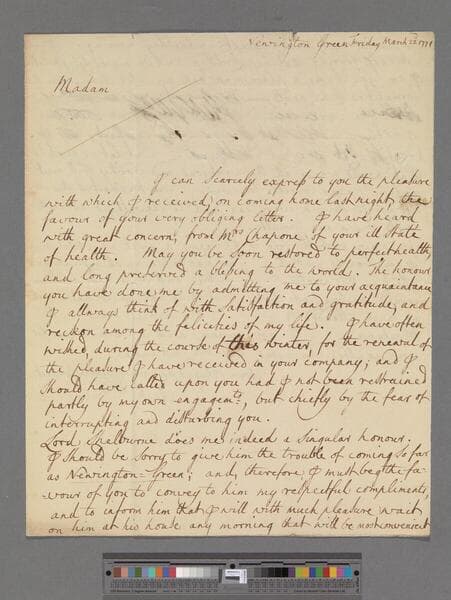 Newington Green Friday March 22 1771
Madam
I can scarcely express to you the pleasure
with which I received, on coming home last night, the
favour of your very obliging letter. I have heard
with great concern, from Mrs Chapone of your ill State
of health. May you be soon restored to perfect health,
and long preserved a blessing to the world. The honour
you have done me by admitting me to your acquaintance
I allways think of with Satisfaction and gratitude, and
reckon among the felicities of my life. I have often
wished, during the course of this winter, for the renewal of
the pleasure I have received in your company; and I
should have called upon you had I not been restrained
partly by my own engagemts, but chiefly by the fear of
interrupting and disturbing you.
Lord Shelburne does me indeed a singular honour.
I should be sorry to give him the trouble of coming so far
as Newington-Green; and, therefore, I must beg the fa-
vour of you to convey to him my respectful compliments,
and to inform him that I will with much pleasure wait
on him at his house any morning that will be most convenient